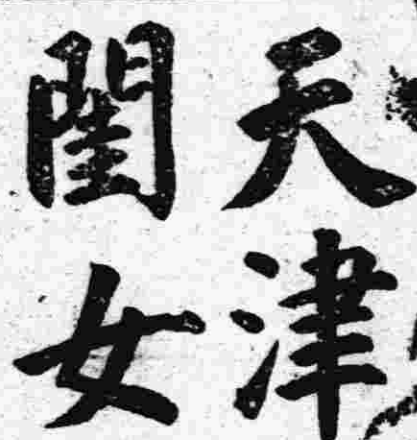 天津
閨女